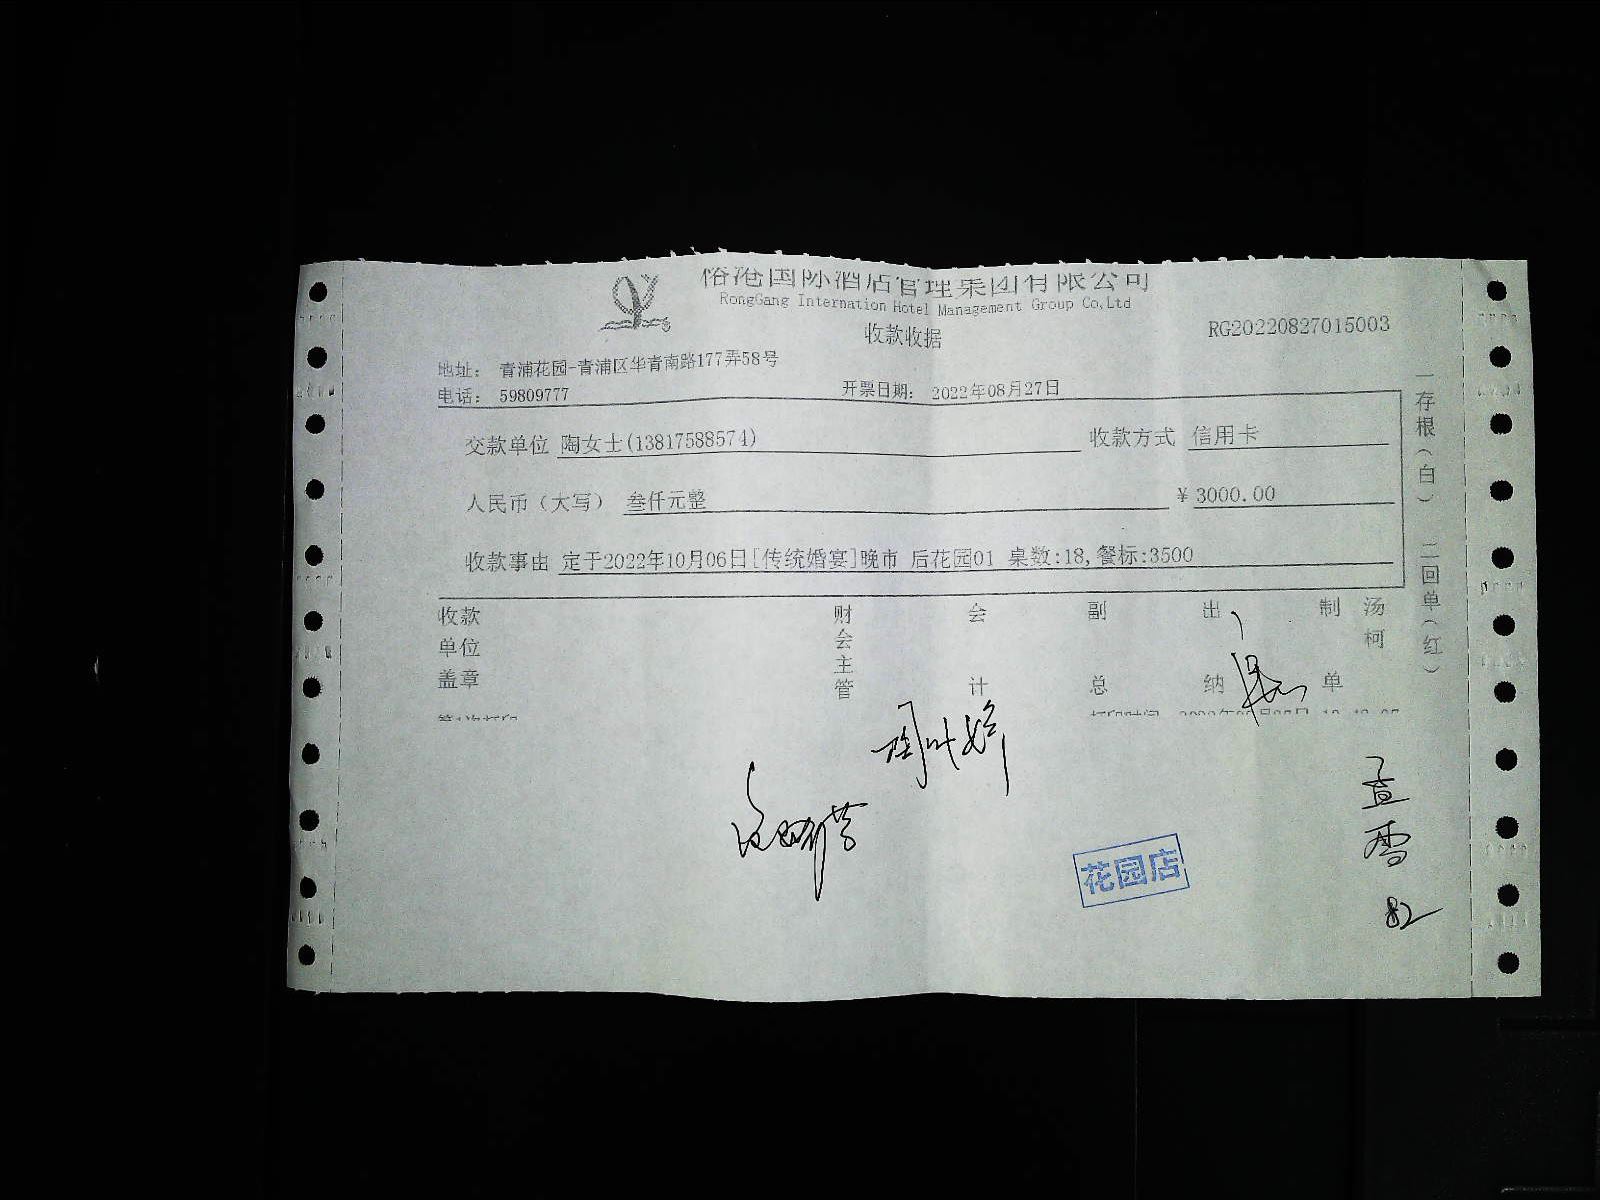 国际酒店管理集团有限公司
RongGang Internation Hotel Management Group Co,Ltd
收款收据
RG20220827015003
地址： 青浦花园-青浦区华青南路177弄58号
电话： 59809777
开票日期： 2022年08月27日
交款单位 陶女士(13817588574) 收款方式 信用卡
人民币（大写） 叁仟元整 ￥3000.00
收款事由 定于2022年10月06日[传统婚宴]晚市 后花园01 桌数:18,餐标:3500
一存根（白） 二回单（红）
收款单位盖章 财会主管 会计 副总 出纳 制单 汤柯
花园店
孟雪
82